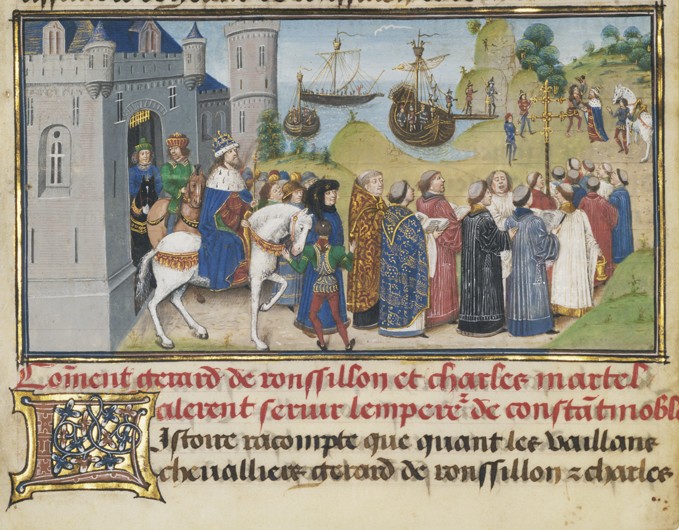 Coment gerard de roussillon et charles martel
alerent seruir lempere de constatinoble
Istoire racompte que quant les vaillans
cheualliers gerard de roussillon z charles